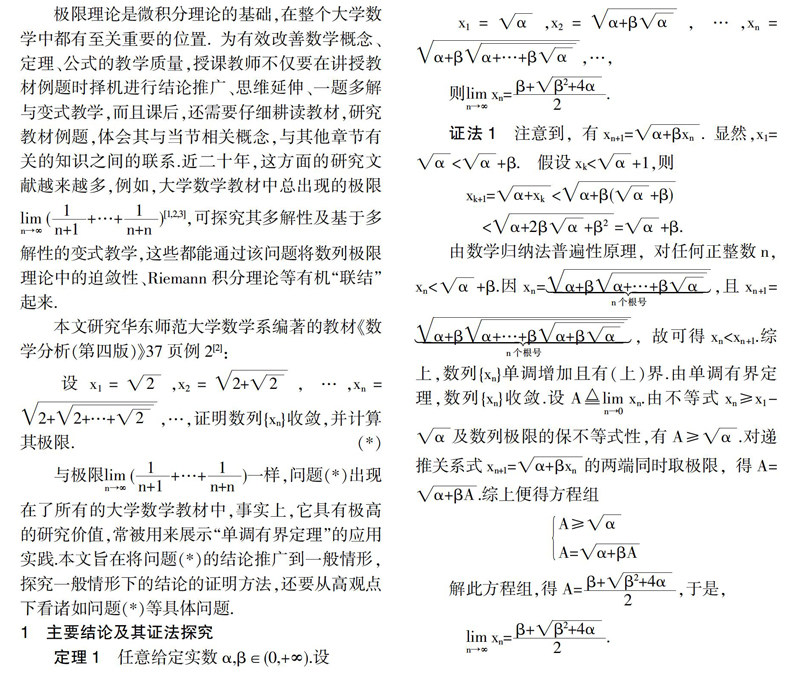 极限理论是微积分理论的基础,在整个大学数
学中都有至关重要的位置. 为有效改善数学概念、
定理、公式的教学质量,授课教师不仅要在讲授教
材例题时择机进行结论推广、思维延伸、一题多解
与变式教学,而且课后,还需要仔细耕读教材,研究
教材例题,体会其与当节相关概念,与其他章节有
关的知识之间的联系.近二十年,这方面的研究文
献越来越多,例如,大学数学教材中总出现的极限
lim_{n→∞}(1/(n+1)+⋯+1/(n+n))^{[1,2,3]},可探究其多解性及基于多
解性的变式教学,这些都能通过该问题将数列极限
理论中的迫敛性、Riemann 积分理论等有机“联结”
起来.
本文研究华东师范大学数学系编著的教材《数
学分析(第四版)》37 页例 2^{[2]}:
设 x₁=√2 ,x₂=√(2+√2) , ⋯ ,xₙ=
√(2+√(2+⋯+√2)) ,⋯,证明数列{xₙ}收敛,并计算
其极限. (*)
与极限lim_{n→∞}(1/(n+1)+⋯+1/(n+n))一样,问题(*)出现
在了所有的大学数学教材中,事实上,它具有极高
的研究价值,常被用来展示“单调有界定理”的应用
实践.本文旨在将问题(*)的结论推广到一般情形,
探究一般情形下的结论的证明方法,还要从高观点
下看诸如问题(*)等具体问题.
1 主要结论及其证法探究
定理 1 任意给定实数 α,β∈(0,+∞).设
x₁=√α ,x₂=√(α+β√α) , ⋯ ,xₙ=
√(α+β√(α+⋯+β√α)) ,⋯,
则lim_{n→∞} xₙ=(β+√(β²+4α))/2.
证法 1 注意到, 有 xₙ₊₁=√(α+βxₙ) . 显然,x₁=
√α<√α+β. 假设 xₖ<√α+1,则
xₖ₊₁=√(α+xₖ)<√(α+β(√α+β))
<√(α+2β√α+β²)=√α+β.
由数学归纳法普遍性原理, 对任何正整数 n,
xₙ<√α+β.因 xₙ=√(α+β√(α+⋯+β√α)) ,且 xₙ₊₁=
n 个根号
√(α+β√(α+⋯+β√(α+β√α))) , 故可得 xₙ<xₙ₊₁.综
n 个根号
上,数列{xₙ}单调增加且有(上)界.由单调有界定
理,数列{xₙ}收敛.设 A≜lim_{n→0} xₙ.由不等式 xₙ≥x₁-
√α及数列极限的保不等式性,有 A≥√α.对递
推关系式 xₙ₊₁=√(α+βxₙ) 的两端同时取极限, 得 A=
√(α+βA).综上便得方程组
{A≥√α
A=√(α+βA)
解此方程组,得 A=(β+√(β²+4α))/2,于是,
lim_{n→∞} xₙ=(β+√(β²+4α))/2.